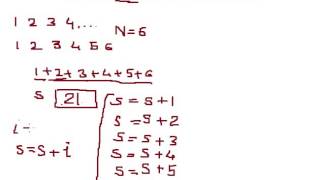 1 2 3 4...
N=6
1 2 3 4 5 6
1+2+3+4+5+6
S 21
S = S+1
S = S+2
S = S+3
S = S+4
S = S+5
S=S+i